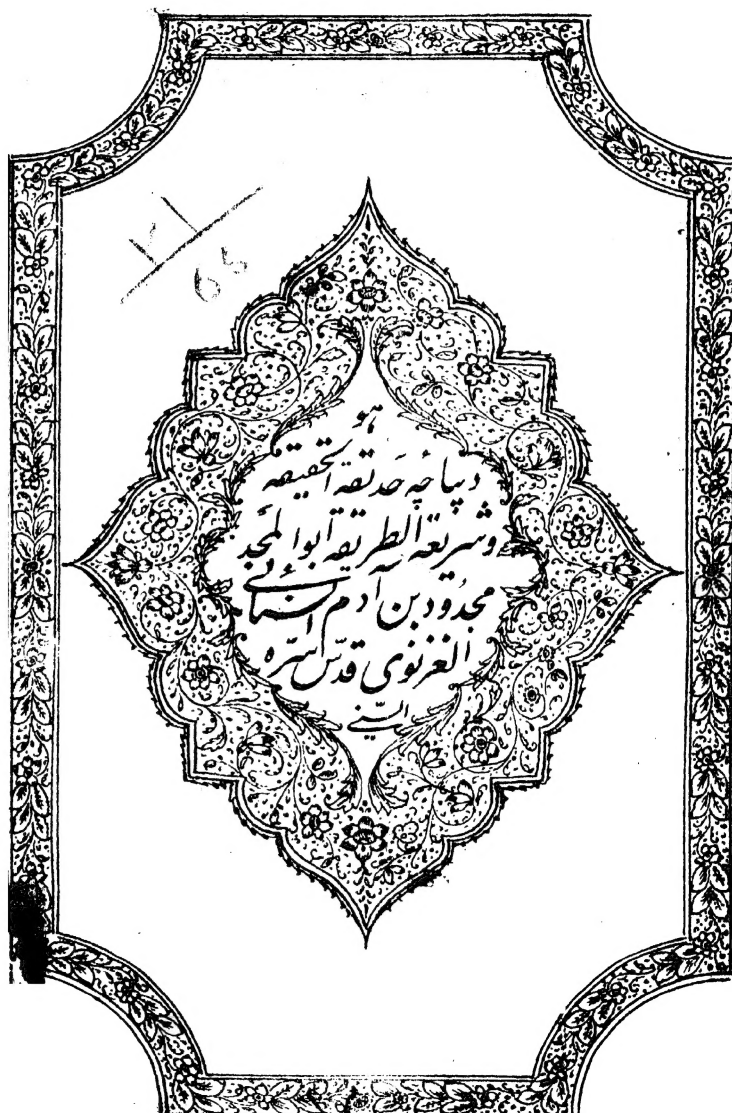 هو
دیباچهٔ حدیقة الحقیقه
وشریعة الطریقه ابوالمجد
مجدود بن آدم السنائی
الغزنوی قدّس سرّه
السّنی